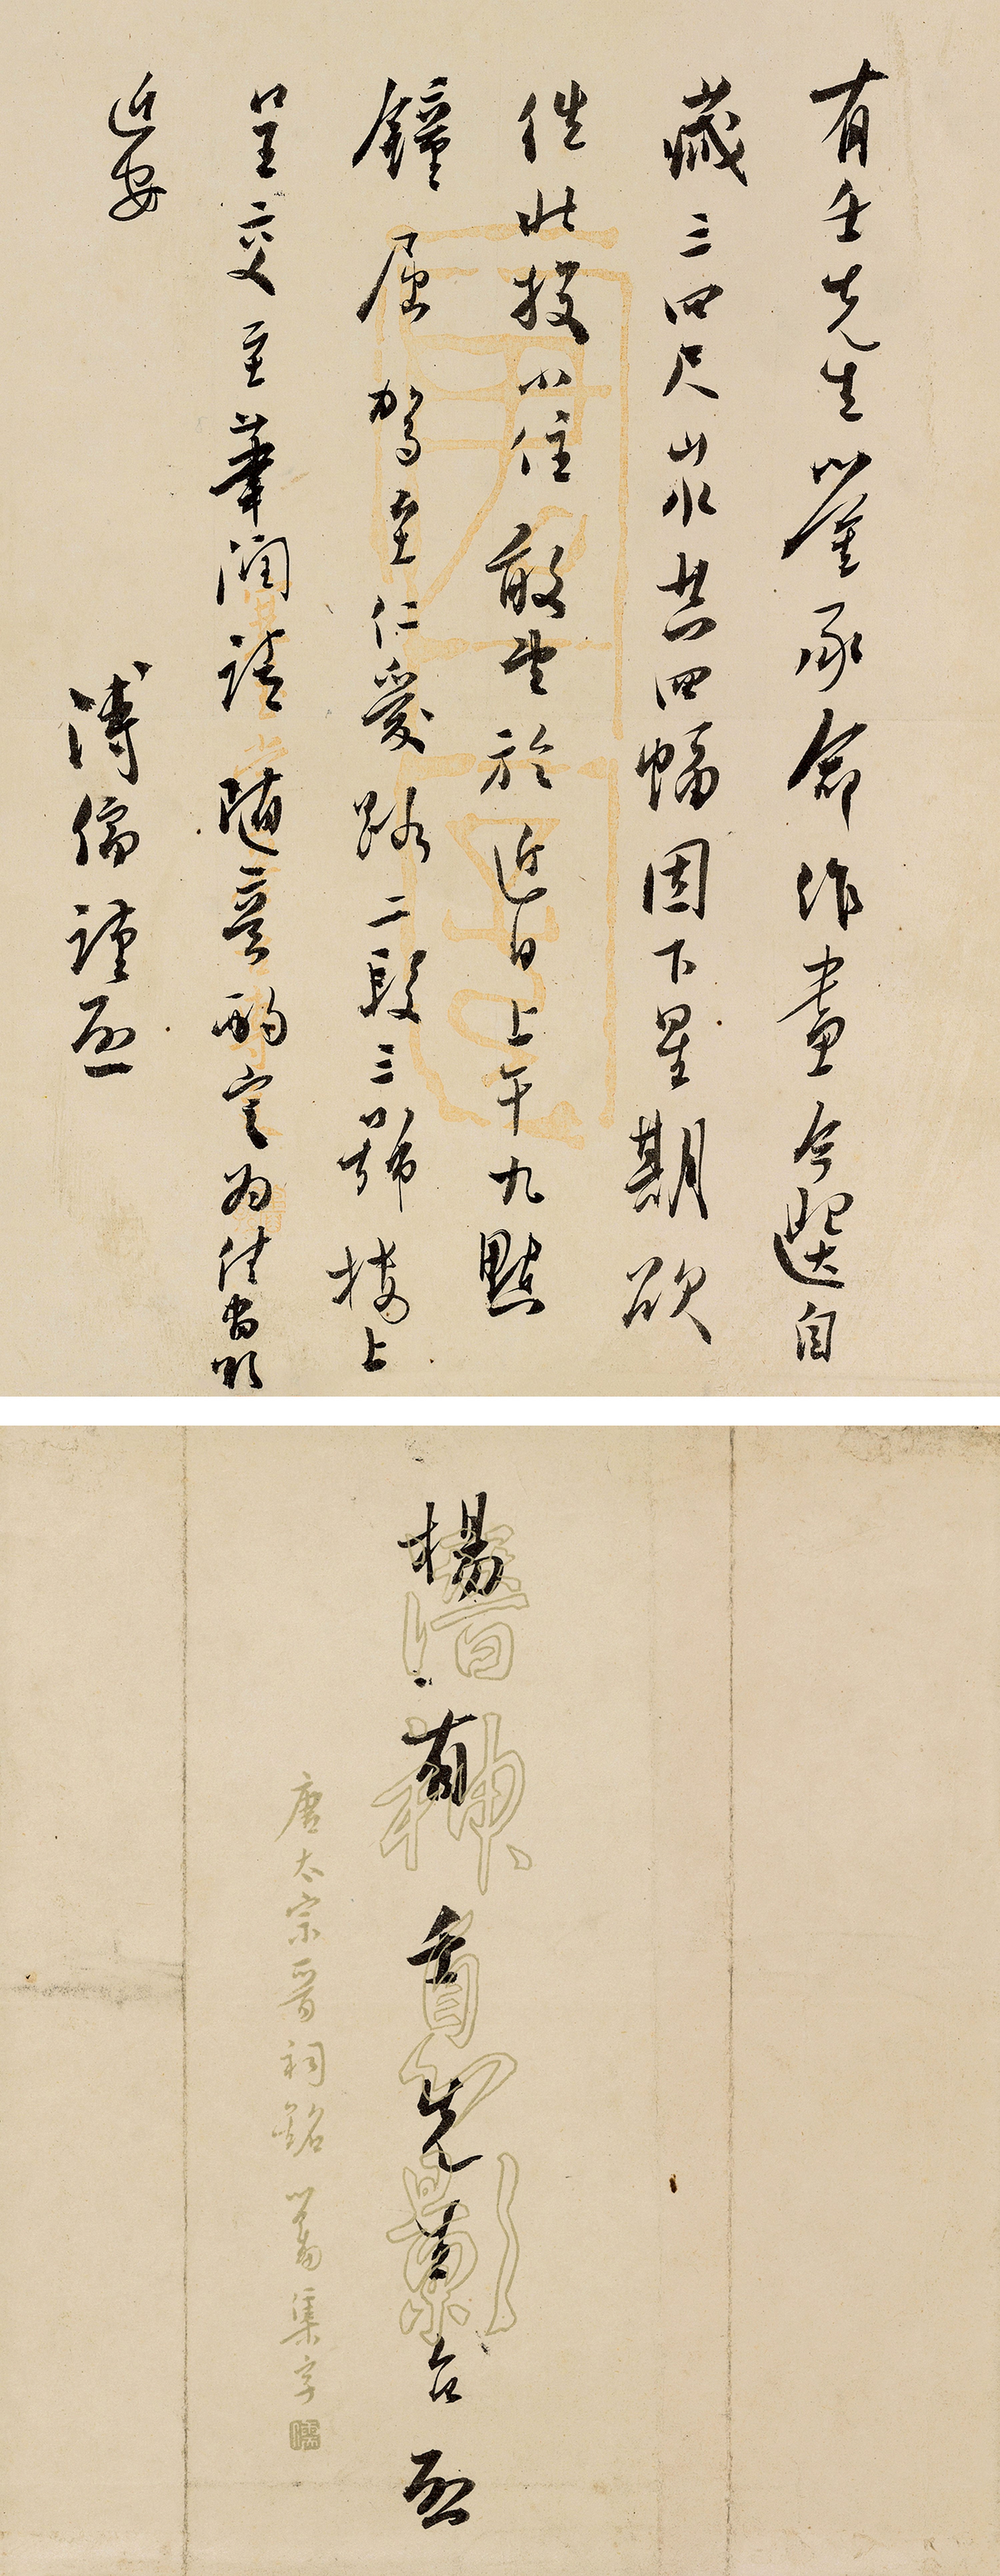 有壬先生鑒承命作畫今選自
藏三四尺山水共四幅因下星期欲
往北投小住敬望於近日上午九點
鐘屈駕至仁愛路二段三號樓上
呈交至筆潤請隨意酌定為佳耑頌
近安
溥儒謹啟
楊有壬先生台啟
唐太宗晉祠銘 心畬集字
儒